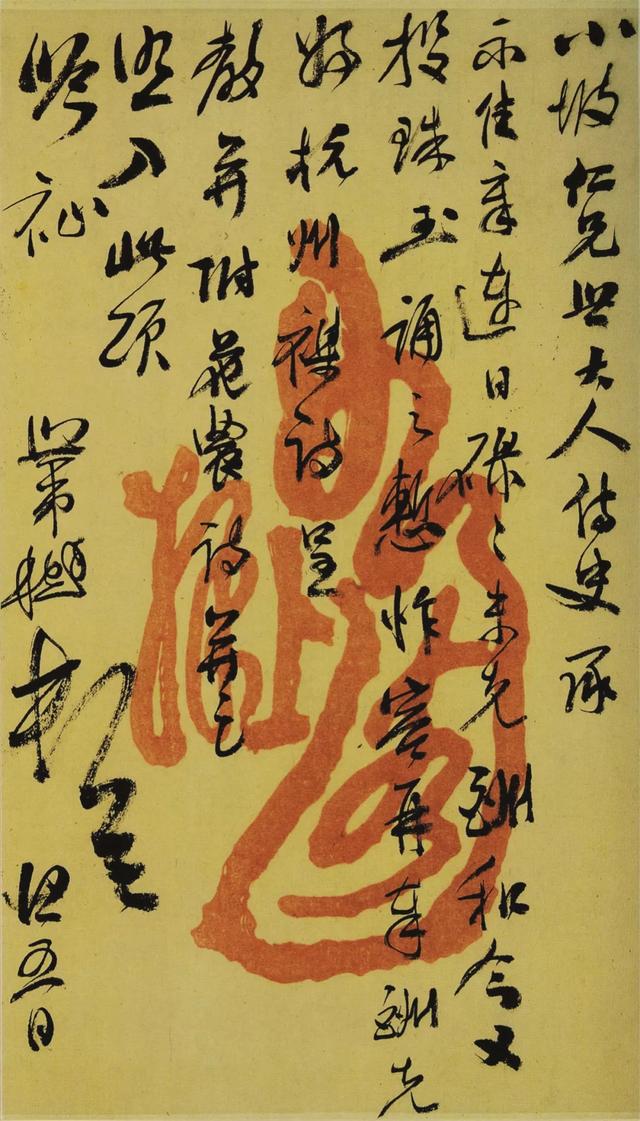 小坡仁兄世大人侍史承
示佳章連日碌々未克酬和今又
投珠玉誦之慙怍容再奉酬先
抄杭州襍詩呈
教并附范農詩并乞
逕入此頌
吟祉
世弟樾頓首
廿五日